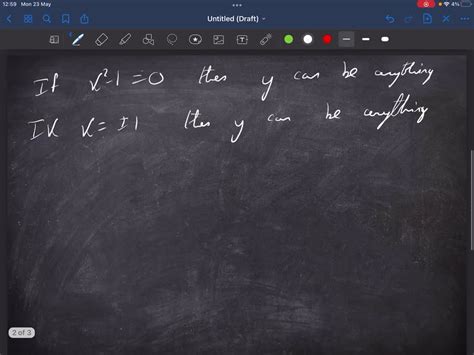 12:59 Mon 23 May
4%
Untitled (Draft)
If x²-1=0 then y can be anything
If x=±1 then y can be anything
2 of 3